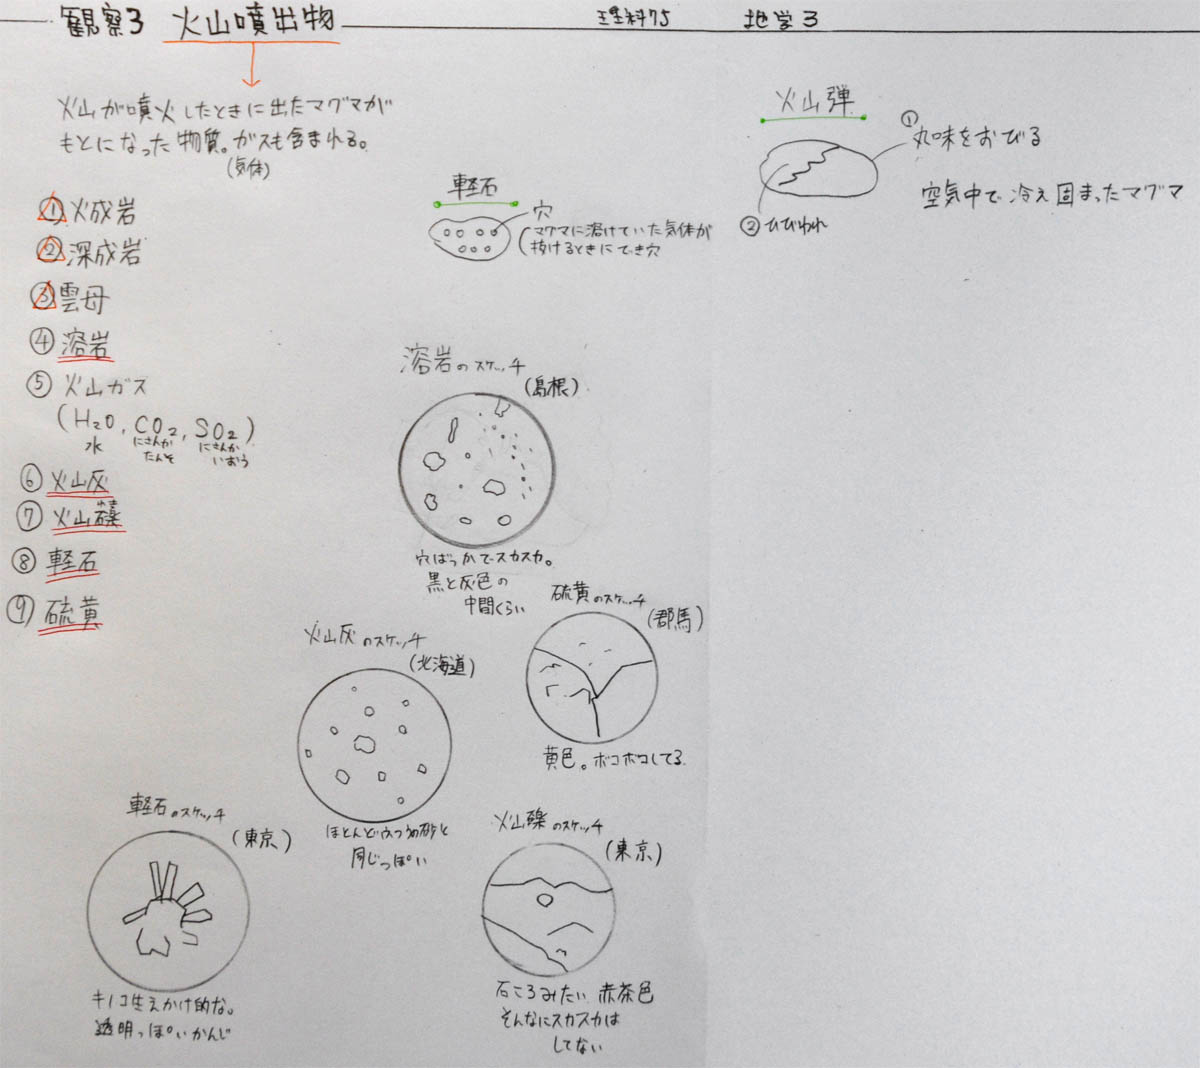 観察3 火山噴出物
理科75
地学3
火山が噴火したときに出たマグマが
もとになった物質。ガスも含まれる。
(気体)
① 火成岩
② 深成岩
③ 雲母
④ 溶岩
⑤ 火山ガス
(H₂O, CO₂, SO₂)
水 にさんか たんそ にさんか いおう
⑥ 火山灰
⑦ 火山礫
⑧ 軽石
⑨ 硫黄
軽石
穴
マグマに溶けていた気体が
抜けるときにでき穴
火山弾
① 丸味をおびる
空気中で冷え固まったマグマ
② ひびわれ
溶岩のスケッチ
(島根)
穴ばっかでスカスカ。
黒と灰色の
中間くらい
硫黄のスケッチ
(郡馬)
黄色。ボコボコしてる
火山灰のスケッチ
(北海道)
ほとんどふつうの砂と
同じっぽい
軽石のスケッチ
(東京)
キノコ生えかけ的な。
透明っぽいかんじ
火山礫のスケッチ
(東京)
石ころみたい 赤茶色
そんなにスカスカは
してない